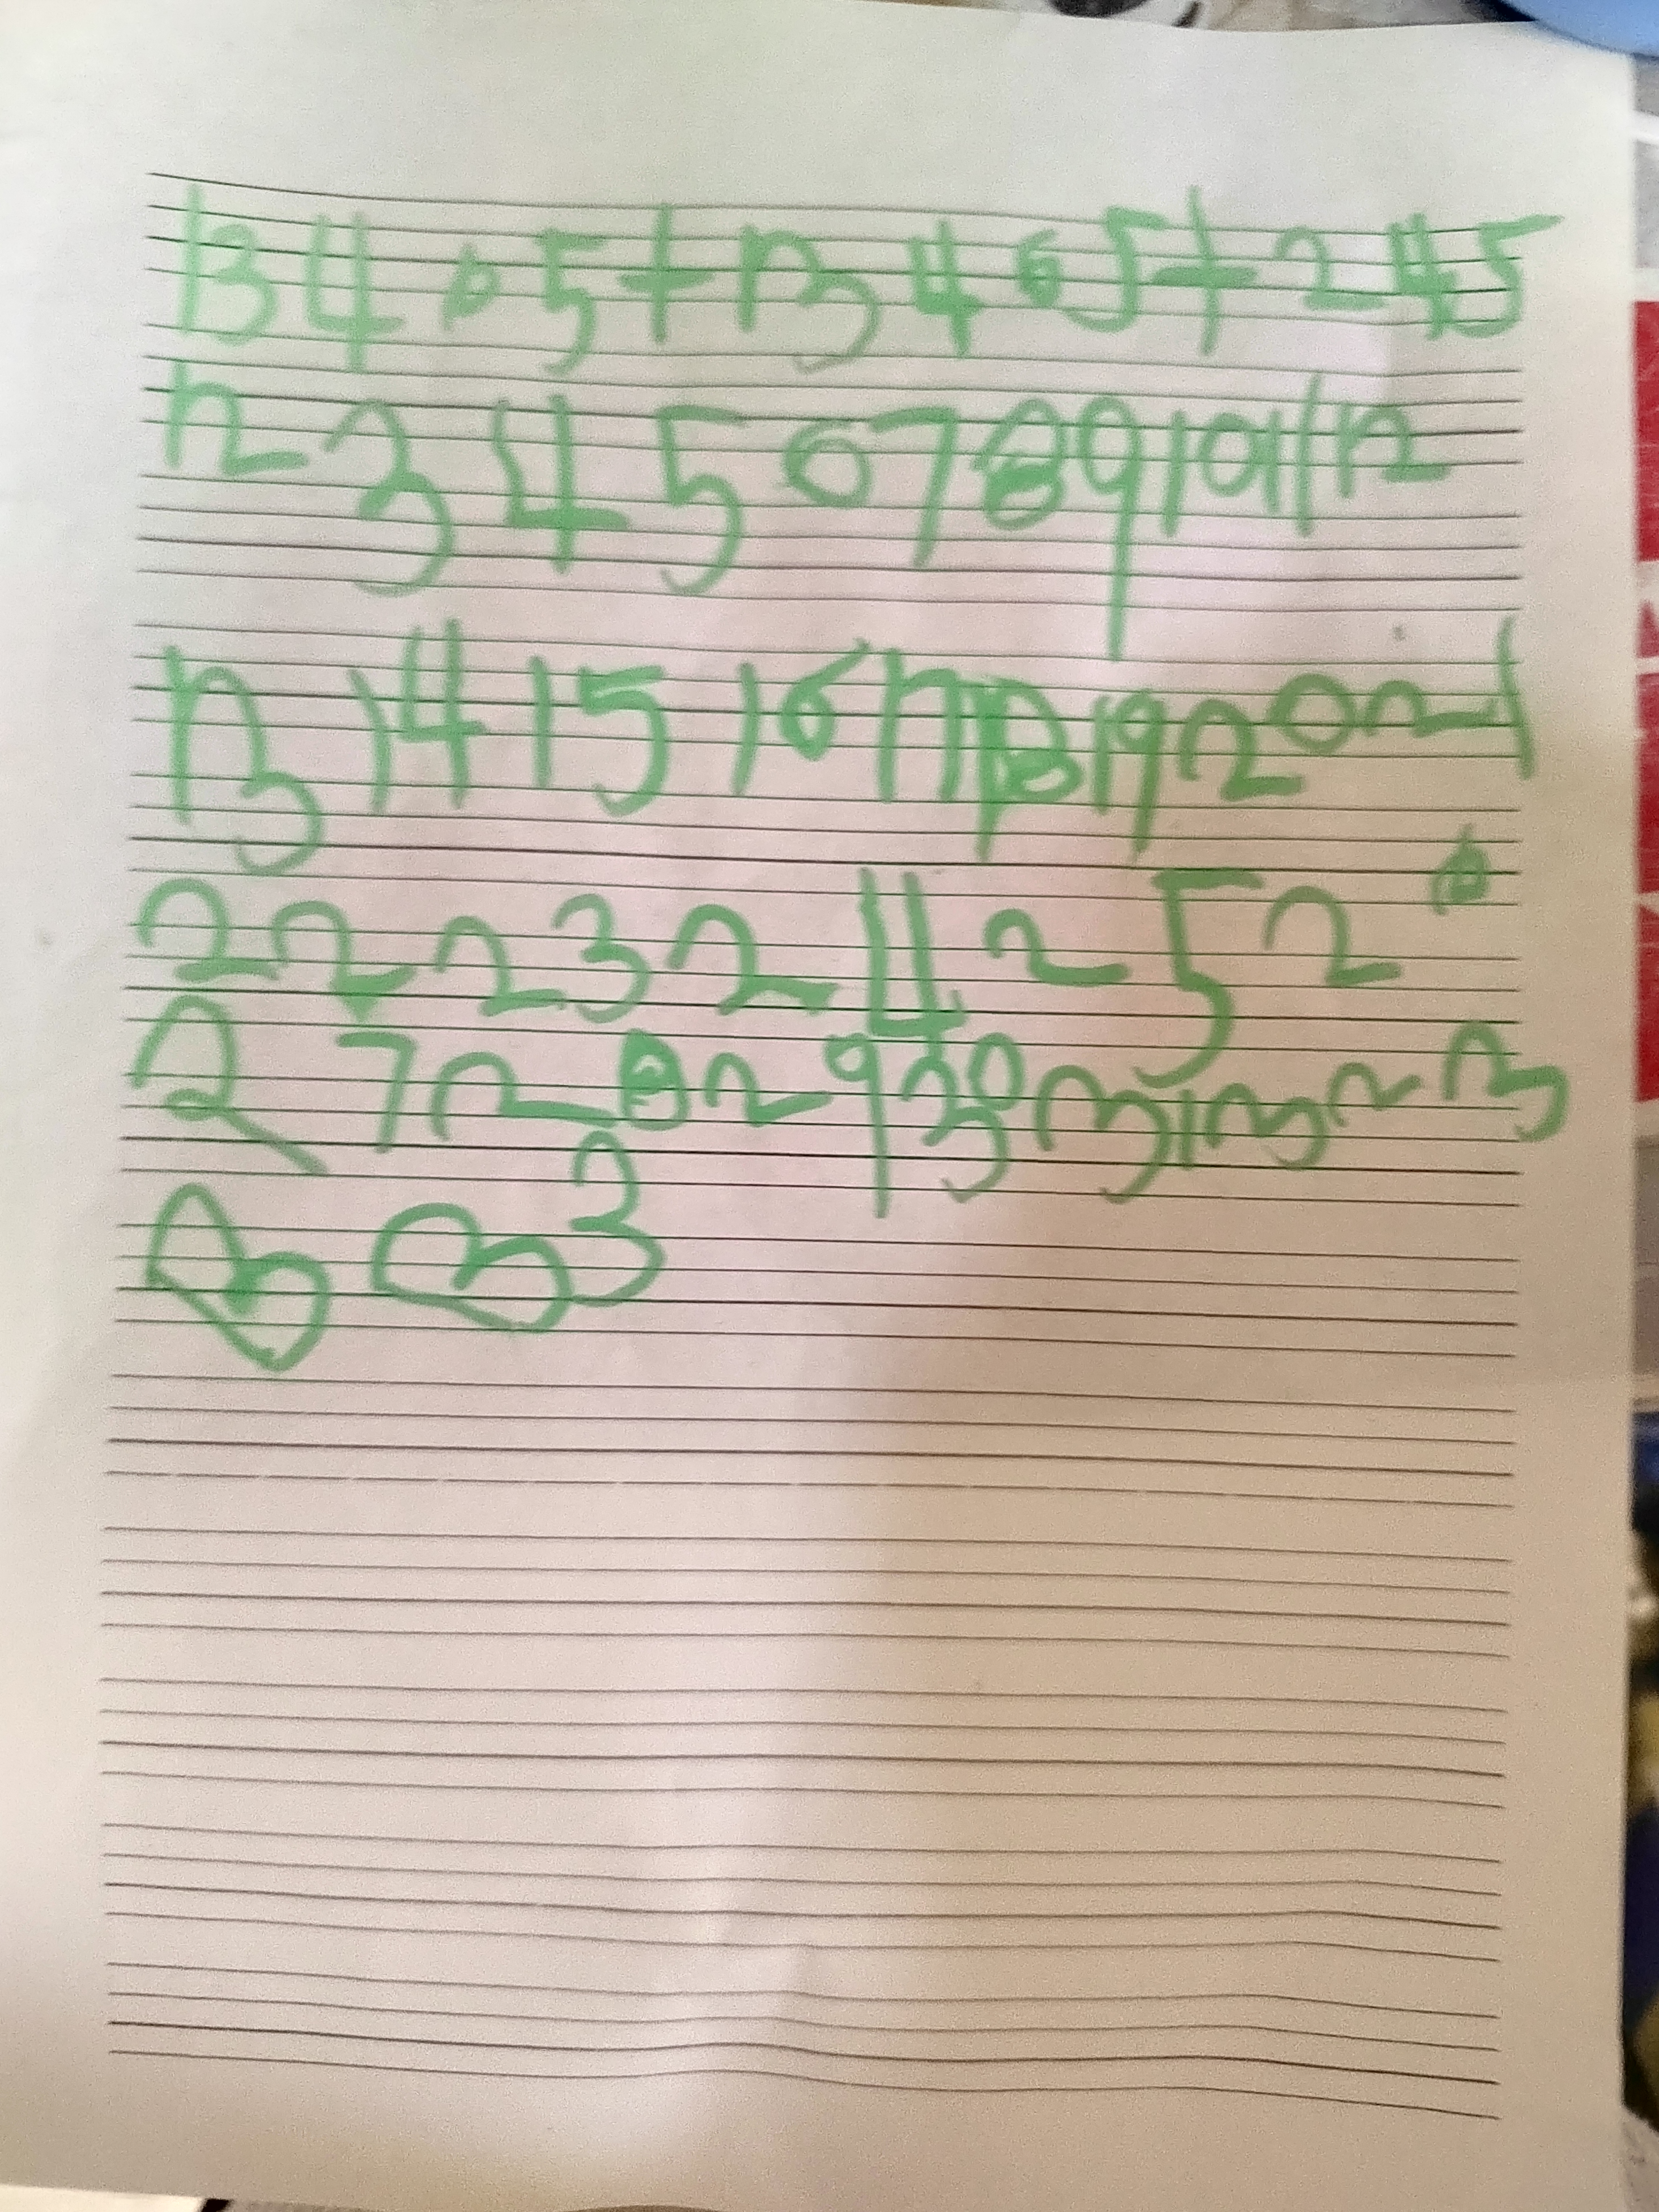 13 4 6 5 + 13 4 6 5 + 2 4 5
1 2 3 4 5 6 7 8 9 10 11 12
13 14 15 16 17 18 19 20 21
22 23 24 25 26
27 28 29 30 31 32 3
3